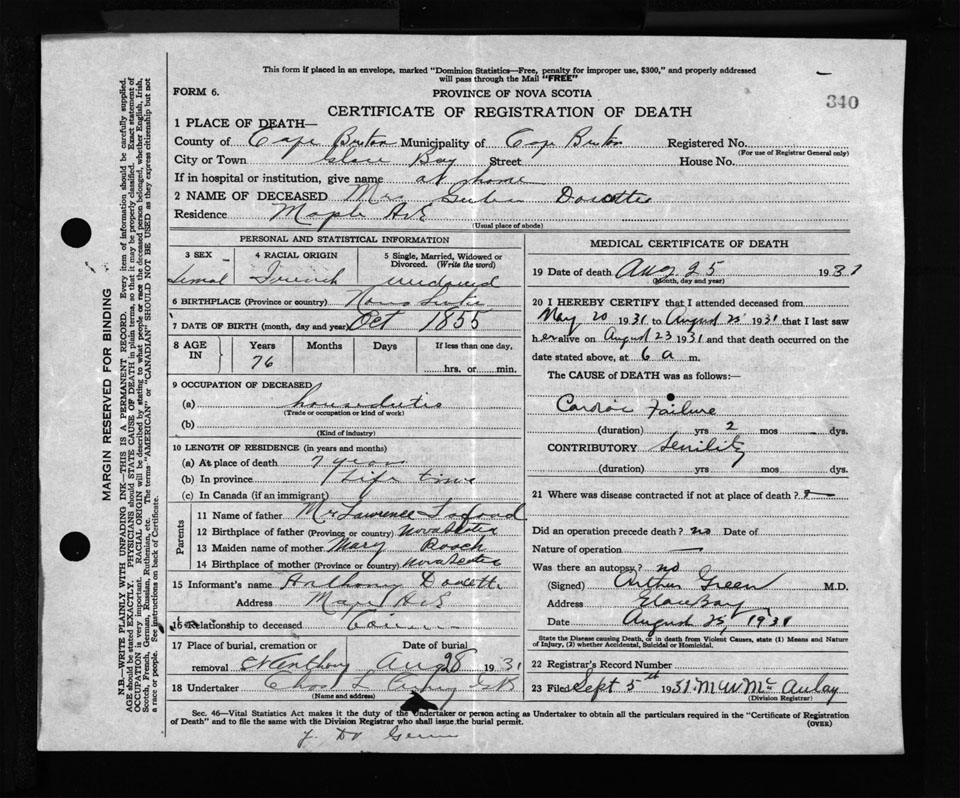 This form if placed in an envelope, marked "Dominion Statistics—Free, penalty for improper use, $300," and properly addressed
will pass through the Mail "FREE"
FORM 6.
PROVINCE OF NOVA SCOTIA
340
CERTIFICATE OF REGISTRATION OF DEATH
1 PLACE OF DEATH—
County of Cape Breton Municipality of Cape Breton Registered No.
(For use of Registrar General only)
City or Town Glace Bay Street House No.
If in hospital or institution, give name at home
2 NAME OF DECEASED Mrs Doucette
Residence Maple Ave
(Usual place of abode)
PERSONAL AND STATISTICAL INFORMATION
3 SEX
4 RACIAL ORIGIN
5 Single, Married, Widowed or Divorced. (Write the word)
Femal French widowed
6 BIRTHPLACE (Province or country) Nova Scotia
7 DATE OF BIRTH (month, day and year) Oct 1855
8 AGE IN
Years Months Days If less than one day.
76 hrs. or min.
9 OCCUPATION OF DECEASED
(a) houseduties
(Trade or occupation or kind of work)
(b)
(Kind of industry)
10 LENGTH OF RESIDENCE (in years and months)
(a) At place of death 7 years
(b) In province Life time
(c) In Canada (if an immigrant)
Parents
11 Name of father Mr Lawrence
12 Birthplace of father (Province or country) Nova Scotia
13 Maiden name of mother Mary Roach
14 Birthplace of mother (Province or country) Nova Scotia
15 Informant's name Anthony Doucette
Address Maple Ave
16 Relationship to deceased
17 Place of burial, cremation or removal
Date of burial
St Anthony Aug 28 1931
18 Undertaker Chas L
(Name and address)
MEDICAL CERTIFICATE OF DEATH
19 Date of death Aug 25 1931
(Month, day and year)
20 I HEREBY CERTIFY that I attended deceased from
May 20 1931 to August 25 1931 that I last saw
her alive on August 23 1931 and that death occurred on the
date stated above, at 6 a m.
The CAUSE of DEATH was as follows:—
Cardiac Failure
(duration) yrs 2 mos dys.
CONTRIBUTORY Senility
(duration) yrs. mos. dys.
21 Where was disease contracted if not at place of death?
Did an operation precede death? no Date of
Nature of operation —
Was there an autopsy? no
(Signed) Arthur Green M.D.
Address Glace Bay
Date August 25, 1931
State the Disease causing Death, or in death from Violent Causes, state (1) Means and Nature
of Injury, (2) whether Accidental, Suicidal or Homicidal.
22 Registrar's Record Number
23 Filed Sept 5th 1931. M W McAulay
(Division Registrar)
Sec. 46—Vital Statistics Act makes it the duty of the Undertaker or person acting as Undertaker to obtain all the particulars required in the "Certificate of Registration
of Death" and to file the same with the Division Registrar who shall issue the burial permit.
(OVER)
MARGIN RESERVED FOR BINDING
N.B.—WRITE PLAINLY WITH UNFADING INK—THIS IS A PERMANENT RECORD. Every item of information should be carefully supplied.
AGE should be stated EXACTLY. PHYSICIANS should STATE CAUSE OF DEATH in plain terms, so that it may be properly classified. Exact statement of
OCCUPATION is very important. RACIAL ORIGIN will be described by stating to what people or race the deceased person belonged, whether English, Irish,
Scotch, French, German, Russian, Ruthenian, etc. The terms "AMERICAN" or "CANADIAN" SHOULD NOT BE USED as they express citizenship but not
a race or people. See instructions on back of Certificate.